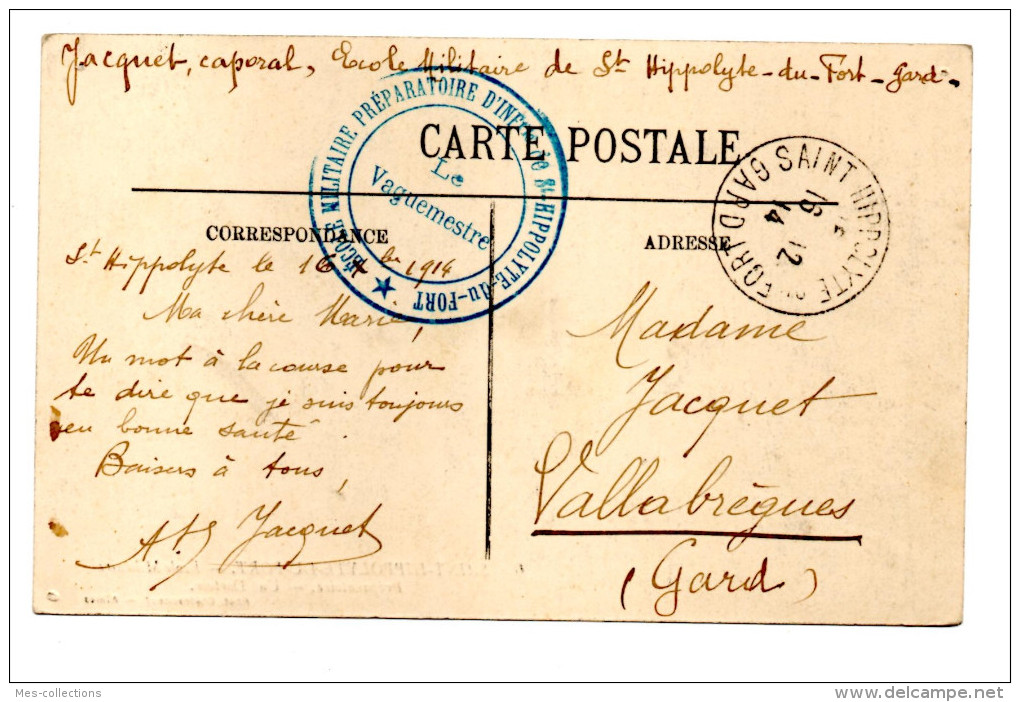 Jacquet, caporal, Ecole Militaire de St Hippolyte-du-Fort-Gard-
ÉCOLE MILITAIRE PRÉPARATOIRE D'INFie de St-HIPPOLYTE-du-FORT
Le
Vaguemestre
CARTE POSTALE
SAINT HIPPOLYTE DU FORT
GARD
16 12
14
CORRESPONDANCE
ADRESSE
St Hippolyte le 16 bre 1914
Ma chère Marie,
Un mot à la course pour
te dire que je suis toujours
en bonne santé
Baisers à tous,
Jacquet
Madame
Jacquet
Vallabrègues
(Gard)
Mes-collections
delcampe.net